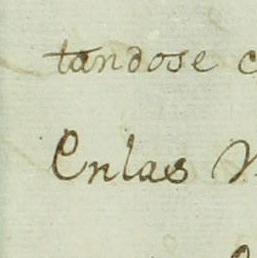 tandose
Enlas